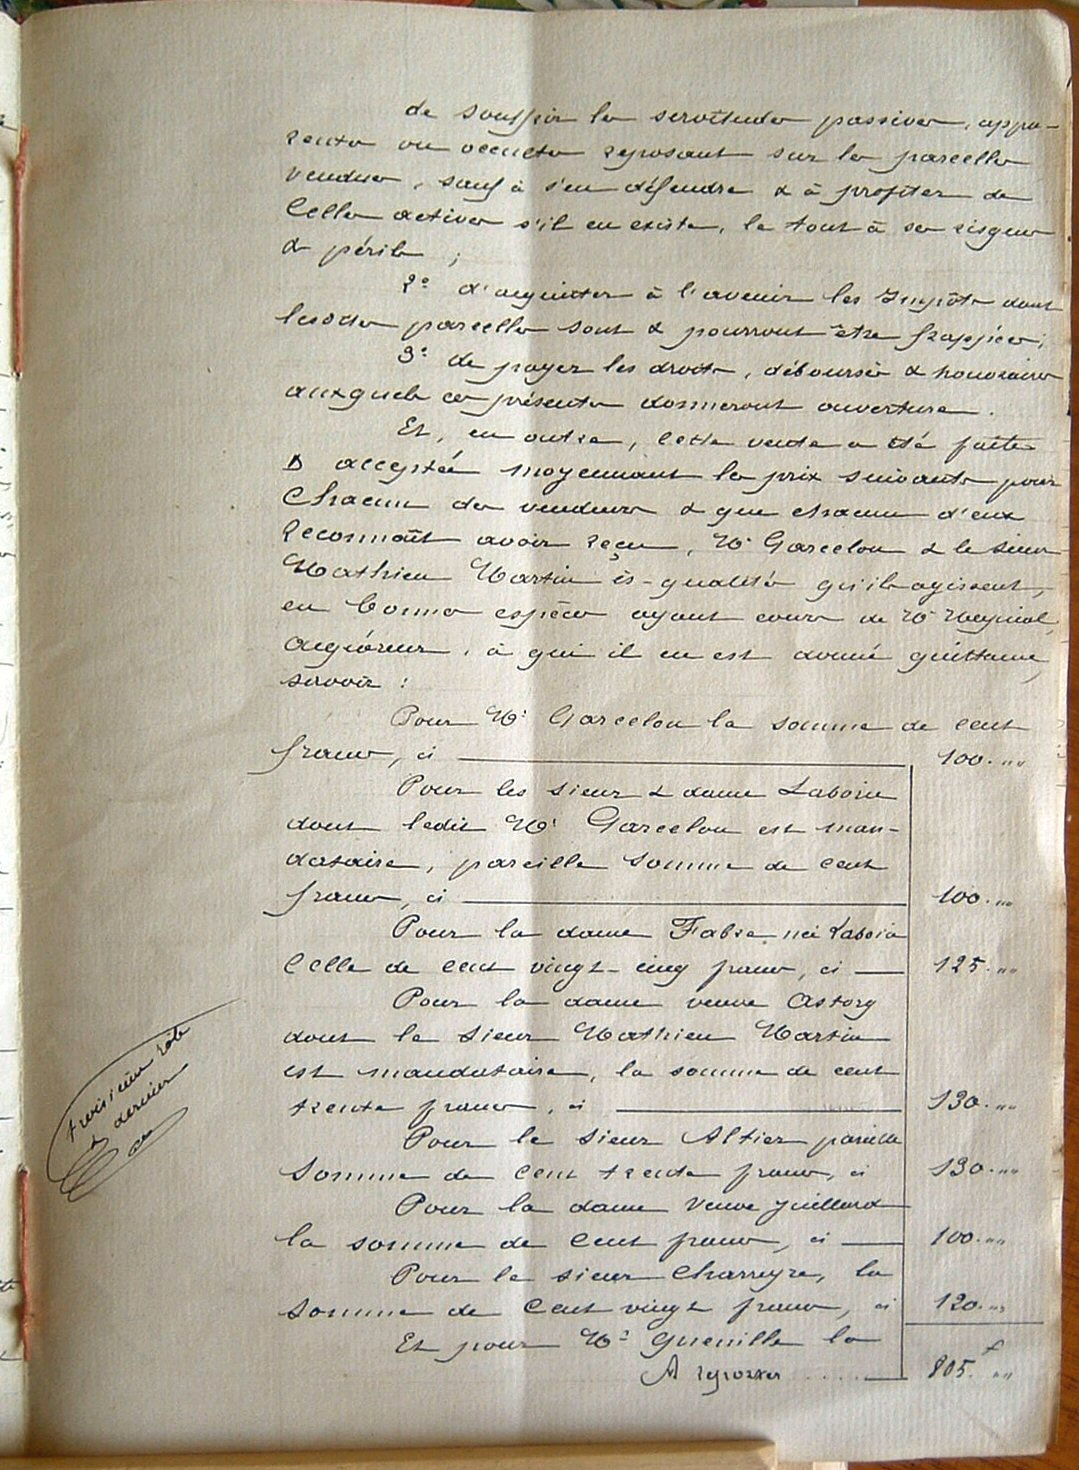 de souffrir les servitudes passives, appa-
rentes ou occultes reposant sur les parcelles
vendues, sauf à s'en défendre & à profiter de
celles actives s'il en existe, le tout à ses risques
& périls ;
2° d'acquitter à l'avenir les Impôts dont
lesdites parcelles sont & pourront être frappées ;
3° de payer les droits, déboursés & honoraires
auxquels ces présentes donneront ouverture.
Et, en outre, cette vente a été faite
& acceptée moyennant les prix suivants pour
chacun des vendeurs & que chacun d'eux
reconnaît avoir reçu, Mr Garcelon & le sieur
Mathieu Martin ès-qualités qu'ils agissent,
en bonnes espèces ayant cours de Mr
acquéreur, à qui il en est donné quittance,
savoir :
Pour Mr Garcelon la somme de cent
francs, ci 100. ""
Pour les sieur & dame Laborie
dont ledit Mr Garcelon est man-
dataire, pareille somme de cent
francs, ci 100. ""
Pour la dame Fabre née Laborie
celle de cent vingt-cinq francs, ci 125. ""
Pour la dame veuve Astorg
dont le sieur Mathieu Martin
est mandataire, la somme de cent
trente francs, ci 130. ""
Pour le sieur Altier pareille
somme de cent trente francs, ci 130. ""
Pour la dame veuve Juillard
la somme de cent francs, ci 100. ""
Pour le sieur Charreyre, la
somme de cent vingt francs, ci 120. ""
Et pour Mr Guenille la
A reporter ..... 805.f ""
troisième rôle
& dernier